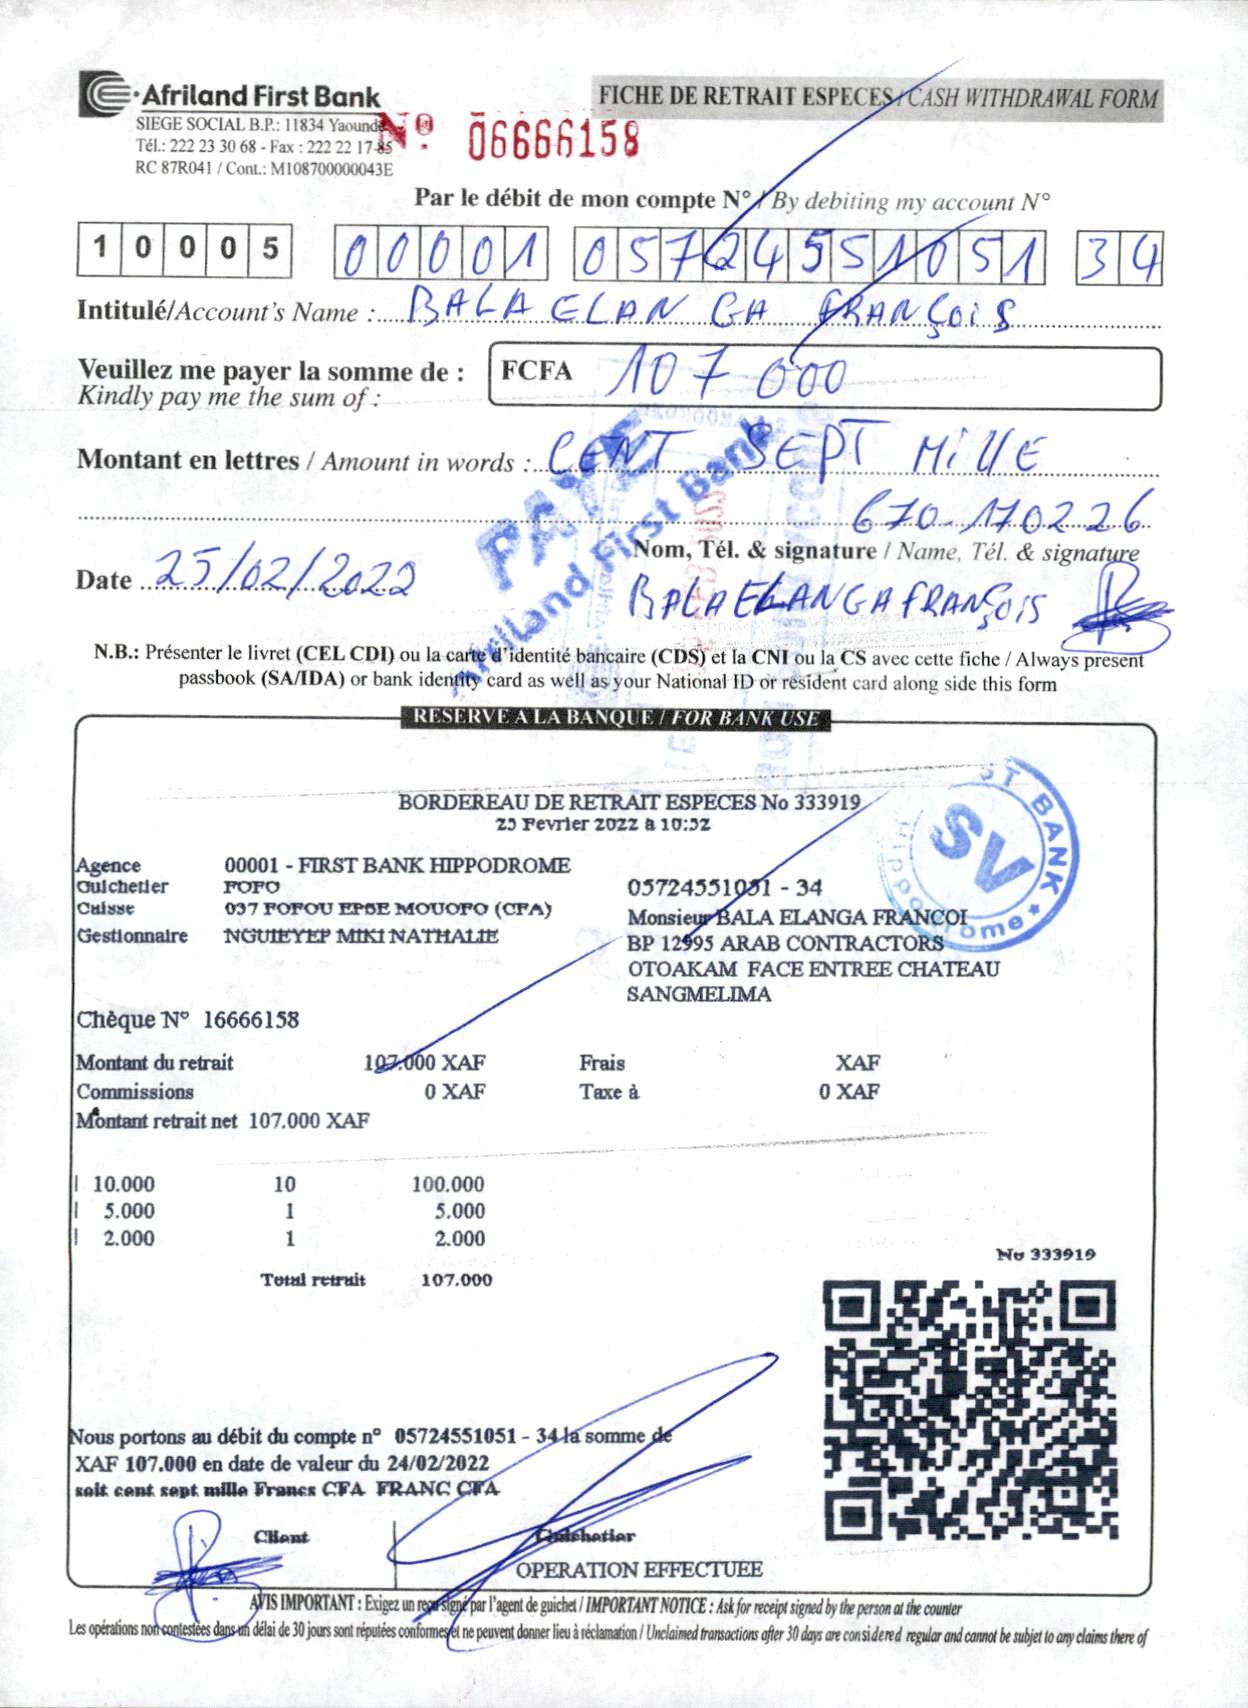 Afriland First Bank
FICHE DE RETRAIT ESPECES / CASH WITHDRAWAL FORM
SIEGE SOCIAL B.P.: 11834 Yaoundé
Tél.: 222 23 30 68 - Fax : 222 22 17 85
RC 87R041 / Cont.: M108700000043E
Nº 06666158
Par le débit de mon compte N° / By debiting my account N°
10005 00001 05724551051 34
Intitulé/Account's Name : BALA ELANGA FRANÇOIS
Veuillez me payer la somme de : FCFA 107 000
Kindly pay me the sum of :
Montant en lettres / Amount in words : CENT SEPT MILLE
670-170226
Nom, Tél. & signature / Name, Tél. & signature
Date 25/02/2022
BALA ELANGA FRANÇOIS
PAYE
Afriland First Bank
N.B.: Présenter le livret (CEL CDI) ou la carte d'identité bancaire (CDS) et la CNI ou la CS avec cette fiche / Always present
passbook (SA/IDA) or bank identity card as well as your National ID or resident card along side this form
RESERVE A LA BANQUE / FOR BANK USE
BORDEREAU DE RETRAIT ESPECES No 333919
25 Fevrier 2022 à 10:52
ST BANK
SV
Hippodrome
Agence 00001 - FIRST BANK HIPPODROME
Guichetier FOFO
05724551051 - 34
Caisse 037 FOFOU EPSE MOUOFO (CFA)
Monsieur BALA ELANGA FRANCOI
Gestionnaire NGUIEYEP MIKI NATHALIE
BP 12995 ARAB CONTRACTORS
OTOAKAM FACE ENTREE CHATEAU
SANGMELIMA
Chèque N° 16666158
Montant du retrait 107.000 XAF Frais XAF
Commissions 0 XAF Taxe à 0 XAF
Montant retrait net 107.000 XAF
10.000 10 100.000
5.000 1 5.000
2.000 1 2.000
No 333919
Total retrait 107.000
Nous portons au débit du compte n° 05724551051 - 34 la somme de
XAF 107.000 en date de valeur du 24/02/2022
soit cent sept mille Francs CFA FRANC CFA
Client Guichetier
OPERATION EFFECTUEE
AVIS IMPORTANT : Exigez un reçu signé par l'agent de guichet / IMPORTANT NOTICE : Ask for receipt signed by the person at the counter
Les opérations non contestées dans un délai de 30 jours sont réputées conformes et ne peuvent donner lieu à réclamation / Unclaimed transactions after 30 days are considered regular and cannot be subjet to any claims there of